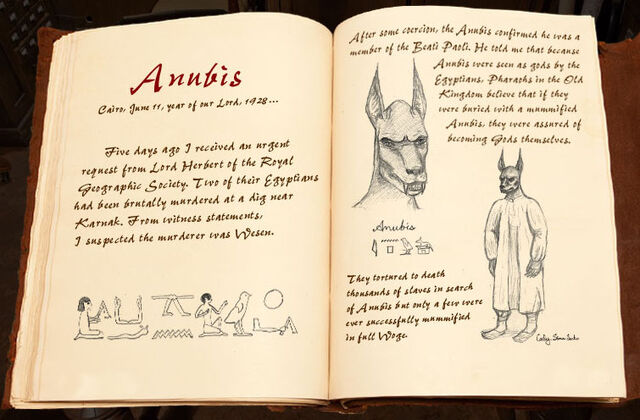 Anubis
Cairo, June 11, year of our Lord, 1928...
Five days ago I received an urgent
request from Lord Herbert of the Royal
Geographic Society. Two of their Egyptians
had been brutally murdered at a dig near
Karnak. From witness statements,
I suspected the murderer was Wesen.
After some coercion, the Anubis confirmed he was a
member of the Beati Paoli. He told me that because
Anubis were seen as gods by the
Egyptians, Pharaohs in the Old
Kingdom believe that if they
were buried with a mummified
Anubis, they were assured of
becoming Gods themselves.
Anubis
They tortured to death
thousands of slaves in search
of Anubis but only a few were
ever successfully mummified
in full Woge.